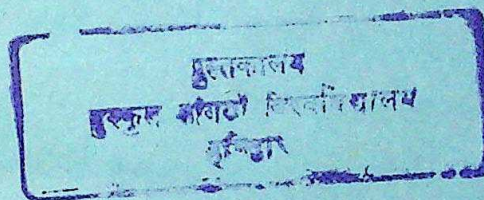 पुस्तकालय
गुरुकुल काँगड़ी विश्वविद्यालय
हरिद्वार